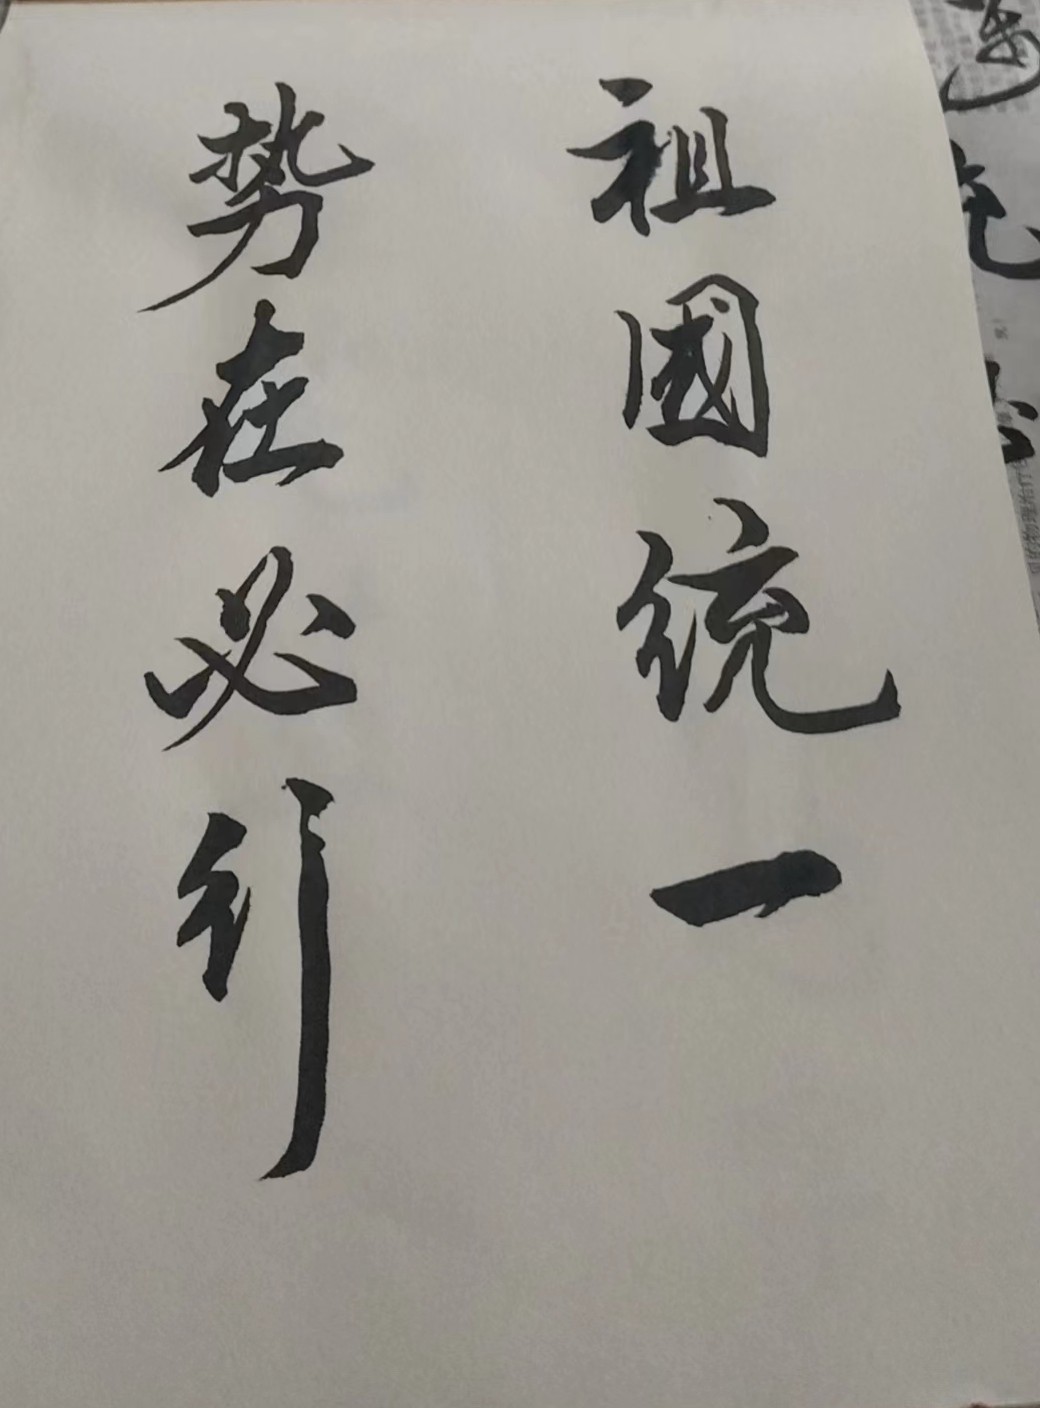 祖國统一
势在必行